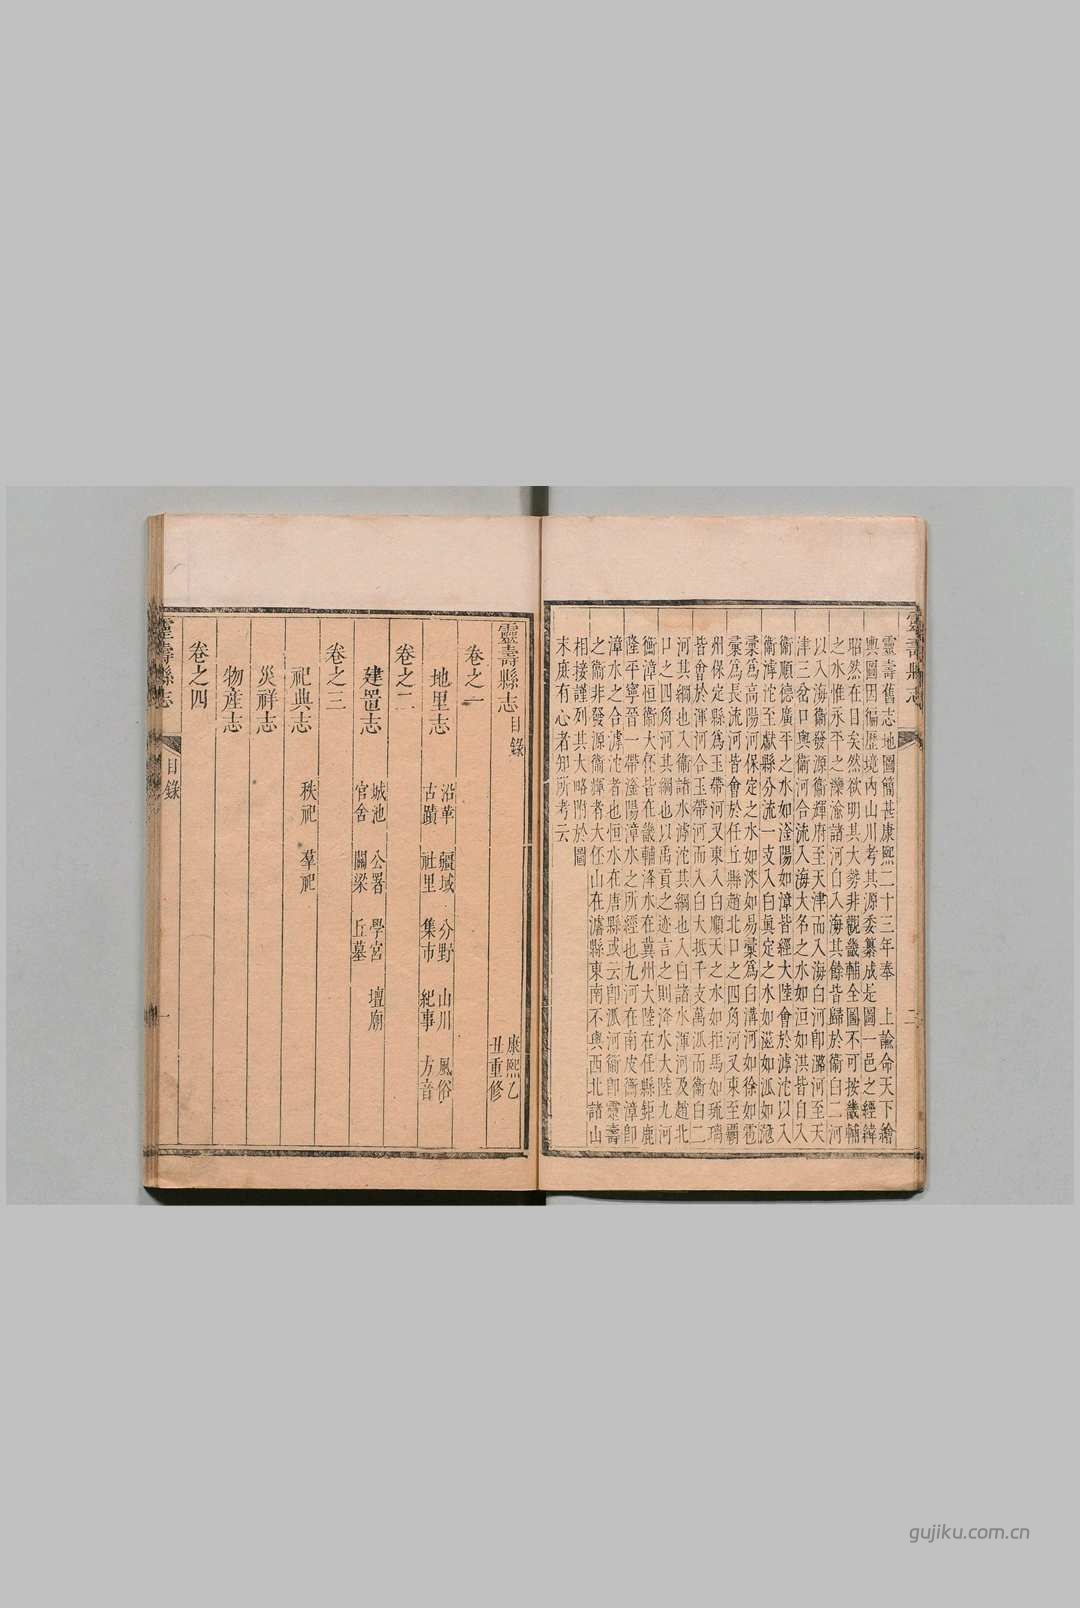 靈壽縣志
二
靈壽舊志地圖簡甚康熙二十三年奉 上諭命天下繪
輿圖因徧歷境內山川考其源委纂成是圖一邑之經緯
昭然在目矣然欲明其大勢非觀畿輔全圖不可按畿輔
之水惟永平之灤渝諸河自入海其餘皆歸於衞白二河
以入海衞發源衞輝府至天津而入海白河卽潞河至天
津三岔口與衞河合流入海大名之水如洹如淇皆自入
衞順德廣平之水如滏陽如漳皆經大陸會於滹沱以入
衞滹沱至獻縣分流一支入白眞定之水如滋如泒如㴲
藁爲高陽河保定之水如淶如易藁爲白溝河如徐如雹
藁爲長流河皆會於任丘縣趙北口之四角河又東至霸
州保定縣爲玉帶河又東入白順天之水如拒馬如琉璃
皆會於渾河合玉帶河而入白大抵千支萬泒而衞白二
河其綱也入衞諸水滹沱其綱也入白諸水渾河及趙北
口之四角河其綱也以禹貢之迹言之則洚水大陸九河
衡漳恒衞大伾皆在畿輔洚水在冀州大陸在任縣鉅鹿
隆平寧晉一帶滏陽漳水之所經也九河在南皮衡漳卽
漳水之合滹沱者也恒水在唐縣或云卽泒河衞卽靈壽
之衞非發源衞輝者大伾山在濬縣東南不與西北諸山
相接謹列其大略附於圖
末庶有心者知所考云
靈壽縣志目錄
康熙乙
丑重修
卷之一
地里志
沿革 疆域 分野 山川 風俗
古蹟 社里 集市 紀事 方音
卷之二
建置志
城池 公署 學宮 壇廟
官舍 關梁 丘墓
卷之三
祀典志 秩祀 羣祀
災祥志
物產志
卷之四
靈壽縣志
目錄
一
gujiku.com.cn